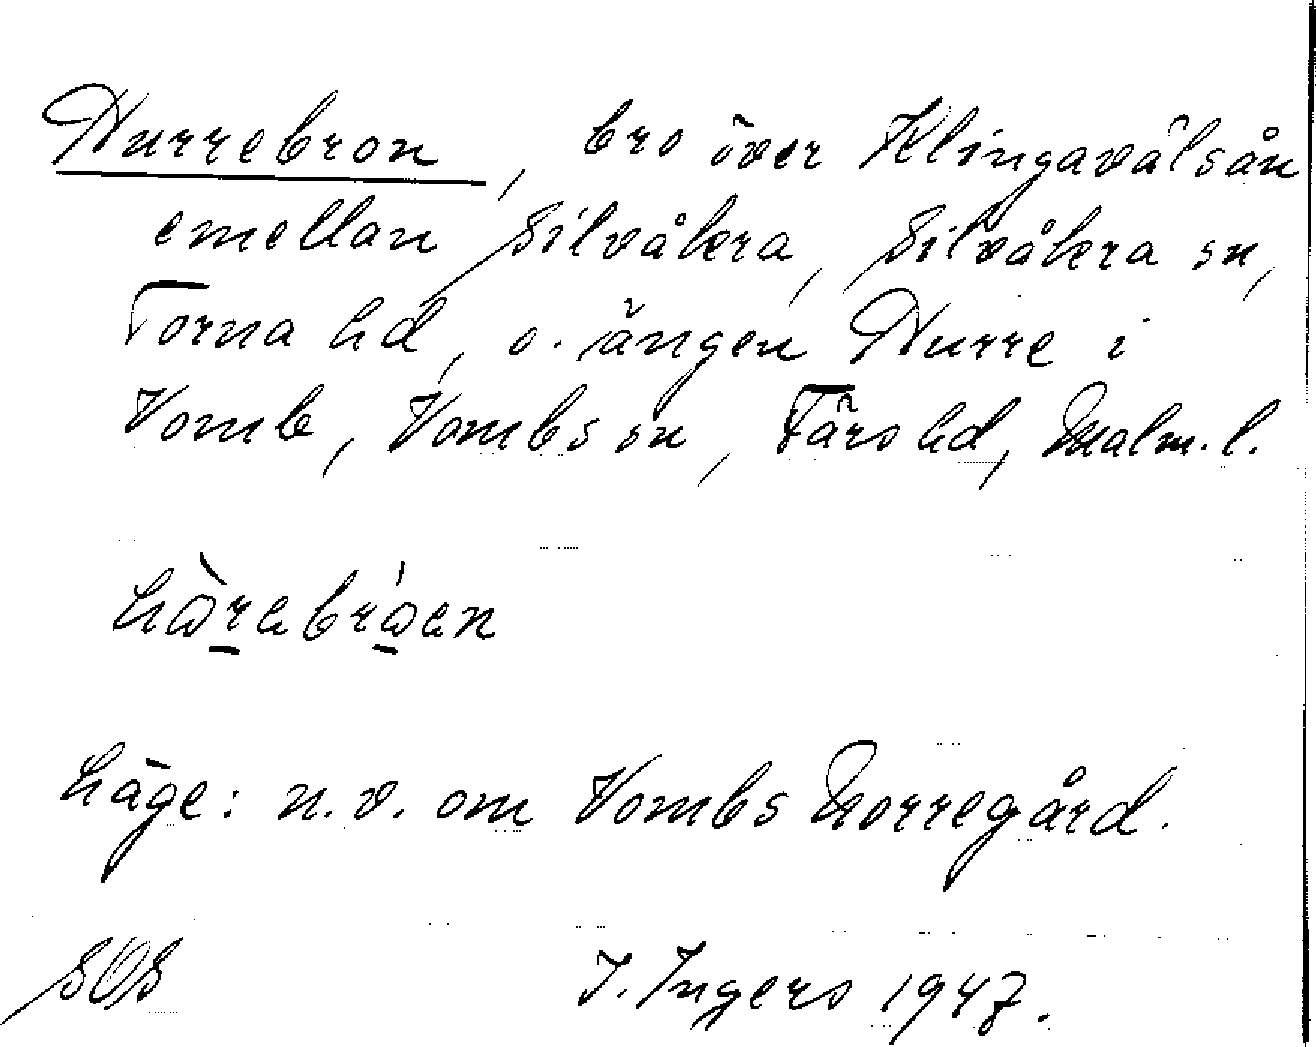 Hurrebron, bro över Klingavälsån
emellan Silvåkra, Silvåkra sn,
Torna hd, o. ängen Hurre i
Vomb, Vombs sn, Färs hd, Malm. l.
Läge: n.v. om Vombs Norregård.
SOS I. Ingers 1947.